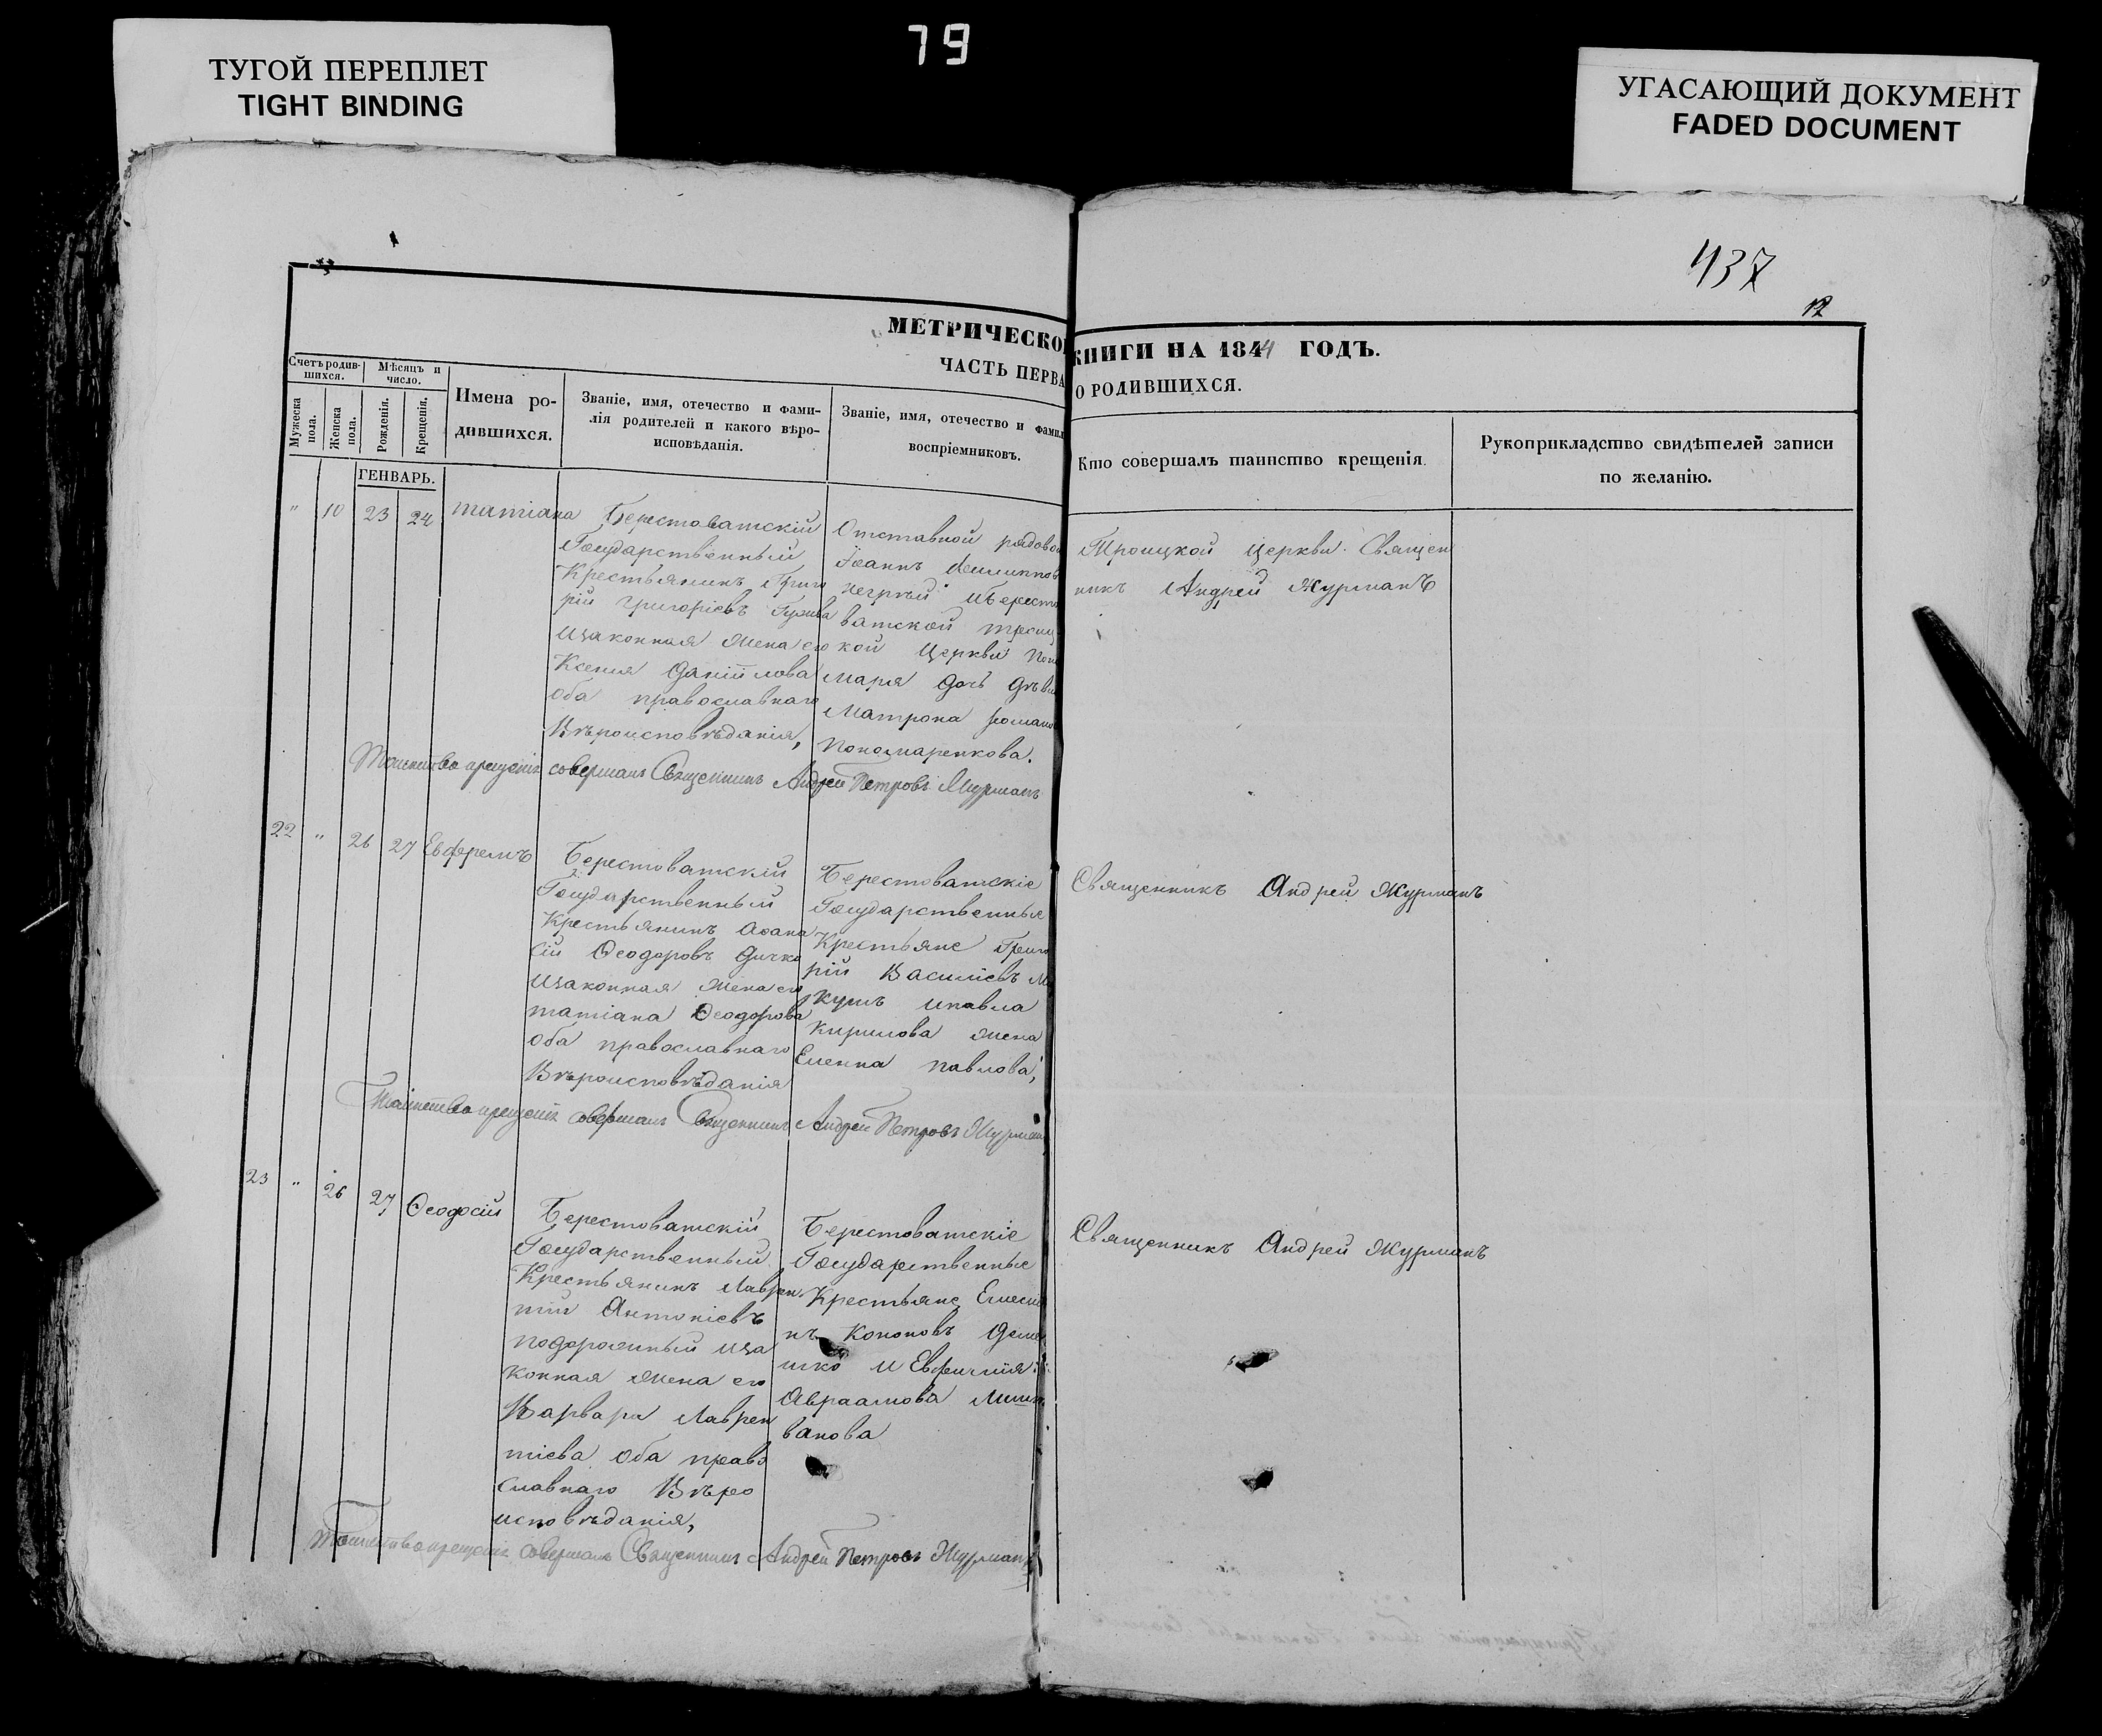 79
ТУГОЙ ПЕРЕПЛЕТ
TIGHT BINDING
УГАСАЮЩИЙ ДОКУМЕНТ
FADED DOCUMENT
437
12
МЕТРИЧЕСКО
КНИГИ НА 1844 ГОДЪ.
ЧАСТЬ ПЕРВА
О РОДИВШИХСЯ.
Счетъ родив-
шихся.
Мѣсяцъ и
число.
Мужеска
пола.
Женска
пола.
Рожденія.
Крещенія.
Имена ро-
дившихся.
Званіе, имя, отечество и фами-
лія родителей и какого вѣро-
исповѣданія.
Званіе, имя, отечество и фамил
воспріемниковъ.
Кто совершалъ таинство крещенія.
Рукоприкладство свидѣтелей записи
по желанію.
ГЕНВАРЬ.
" 10 23 24 татіана
Берестоватскій
Государственный
Крестьянинъ Григо
рій григоріевъ
изаконная жена его
Ксенія Даніилова
оба православнаго
Вѣроисповѣданія,
Отставной рядово
Іоаннъ Филиппов
ибересто
ватской троиц
кой Церкви Поно
маря дочь дѣви
Матрона романо
Пономаренкова.
Троицкой Церкви Священ
никъ Андрей Журманъ
Таинство крещенія совершалъ Священникъ Андрей Петровъ Журманъ
22 " 26 27 Евфремъ
Берестоватскій
Государственный
Крестьянинъ Афана
сій Ѳеодоровъ Дичко
изаконная жена его
татіана Ѳеодорова
оба православнаго
Вѣроисповѣданія
Берестоватскіе
Государственные
Крестьяне Григо
рій Василіевъ М
кушъ ипавла
Кирилова жена
Еленна павлова,
Священникъ Андрей Журманъ
Таинство крещенія совершалъ Священникъ Андрей Петровъ Журманъ
23 " 26 27 Ѳеодосій
Берестоватскій
Государственный
Крестьянинъ Лаврен
тій Антоніевъ
подорожный иза
конная жена его
Варвара Лаврен
тіева оба право
славнаго Вѣро
исповѣданія,
Берестоватскіе
Государственные
Крестьяне Емелiа
нъ Кононовъ Деме
шко и Евфимія
Авраамова Лит
ванова
Священникъ Андрей Журманъ
Таинство крещенія совершалъ Священникъ Андрей Петровъ Журманъ